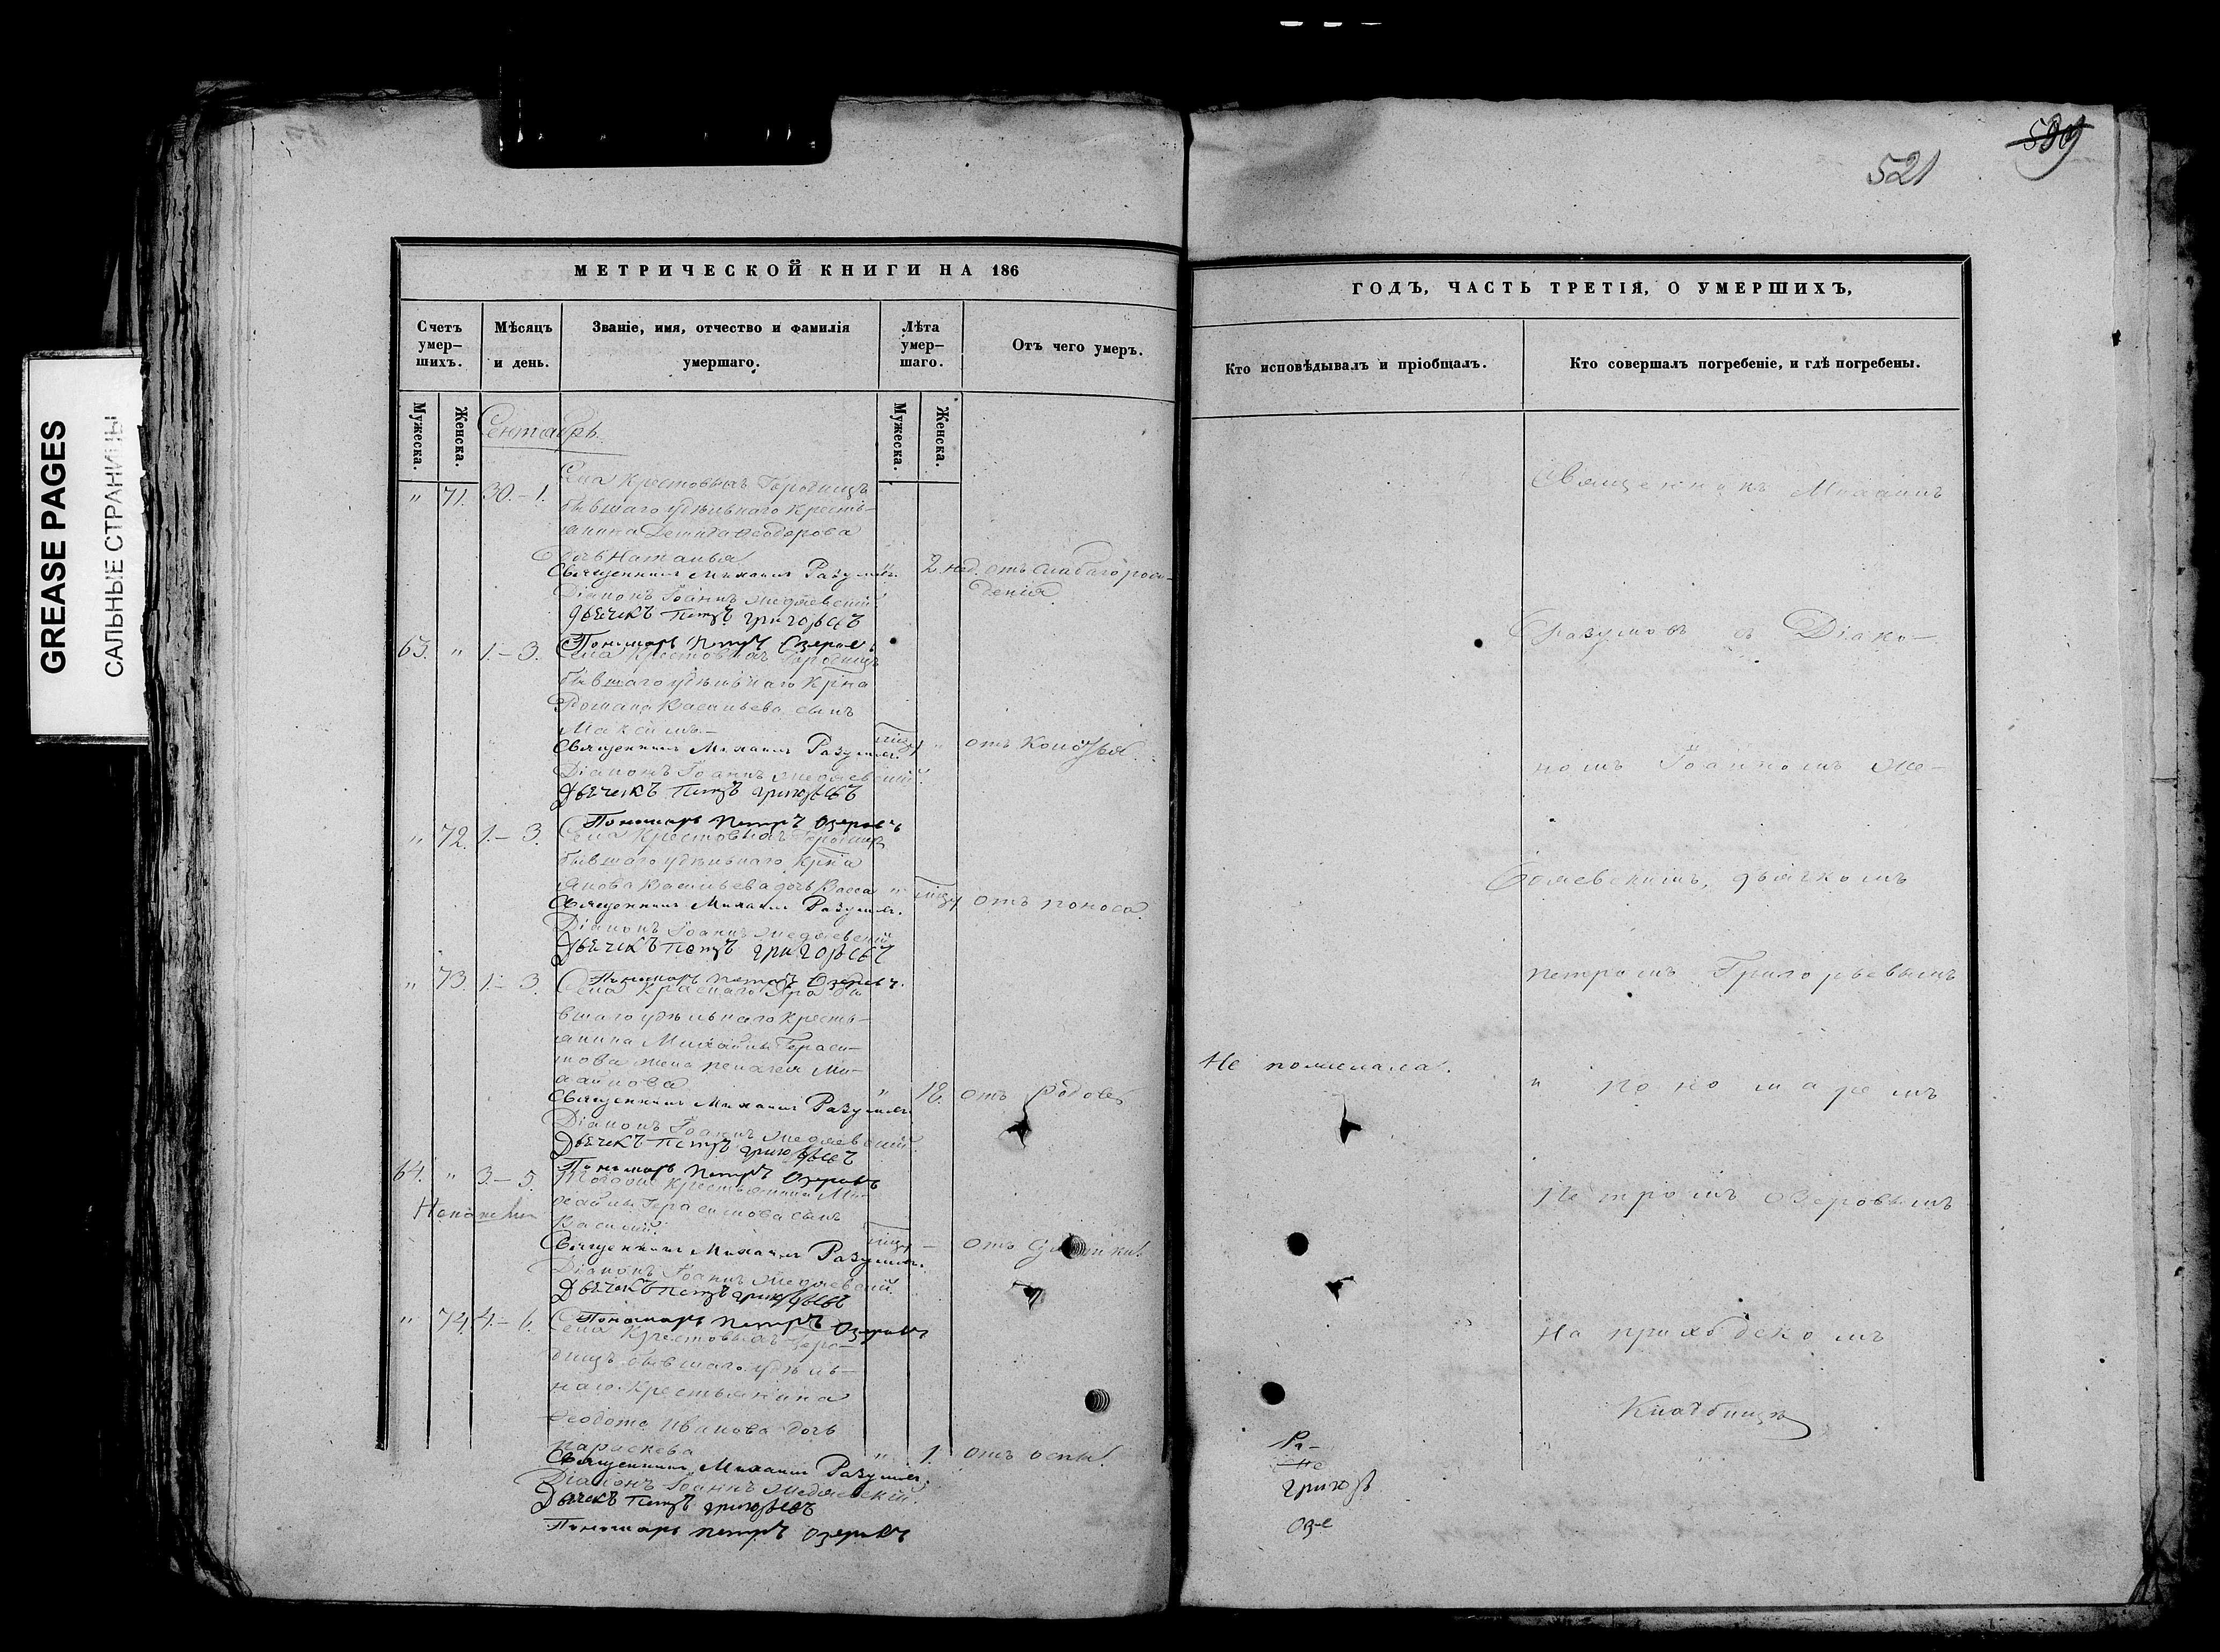 GREASE PAGES
САЛЬНЫЕ СТРАНИЦЫ
МЕТРИЧЕСКОЙ КНИГИ НА 186
Счетъ умер-шихъ.
Мѣсяцъ и день.
Званіе, имя, отчество и фамилія умершаго.
Лѣта умер-шаго.
Отъ чего умеръ.
Мужеска.
Женска.
Мужеска.
Женска.
Сентябрь.
" 71. 30.-1. Села Крестовыхъ Городищъ
бывшаго удѣльнаго кресть-
янина Демида Ѳеодорова
дочь Наталья
Священникъ Михаилъ Разумовъ " 2. нед. отъ слабаго рож-
Діаконъ Іоаннъ денія
Дьячекъ Петръ Григорьевъ
Пономарь Петръ Озеровъ
63. " 1.-3. Села Крестовыхъ Городищъ
бывшаго удѣльнаго крна
Романа Васильева сынъ
Максимъ.
Священникъ Михаилъ Разумовъ. " отъ колотья.
Діаконъ Іоаннъ
Дьячекъ Петръ Григорьевъ
Пономарь Петръ Озеровъ
" 72. 1.-3. Села Крестовыхъ Городищъ
бывшаго удѣльнаго крна
Якова Васильева дочь Васса "
Священникъ Михаилъ Разумовъ. отъ поноса.
Діаконъ Іоаннъ
Дьячекъ Петръ Григорьевъ
Пономарь Петръ Озеровъ.
" 73. 1.-3. Села Краснаго Яра бы
вшаго удѣльнаго кресть-
янина Михайлы Гераси-
мова жена Пелагея Ми-
хайлова
Священникъ Михаилъ Разумовъ " 18. отъ родовъ
Діаконъ Іоаннъ
Дьячекъ Петръ Григорьевъ
Пономарь Петръ Озеровъ
64. " 3.-5. Тогоже крестьянина Ми-
хайлы Герасимова сынъ
Василій.
Священникъ Михаилъ Разумовъ. отъ
Діаконъ Іоаннъ
Дьячекъ Петръ Григорьевъ
Пономарь Петръ Озеровъ
" 74. 4.-6. Села Крестовыхъ Горо-
дищъ бывшаго удѣль-
наго крестьянина
Ѳеодота Иванова дочь
Параскева " 1. отъ оспы.
Священникъ Михаилъ Разумовъ.
Діаконъ Іоаннъ
Дьячекъ Петръ Григорьевъ
Пономарь Петръ Озеровъ
521
ГОДЪ, ЧАСТЬ ТРЕТІЯ, О УМЕРШИХЪ,
Кто исповѣдывалъ и пріобщалъ.
Кто совершалъ погребеніе, и гдѣ погребены.
Священникъ Михаилъ
Разумовъ съ Діако-
номъ Іоанномъ
дьячкомъ
Петромъ Григорьевымъ
Не пожелала.
и пономаремъ
Петромъ Озеровымъ
на приходскомъ
Кладбищѣ
Ра-
Григорь
Озе